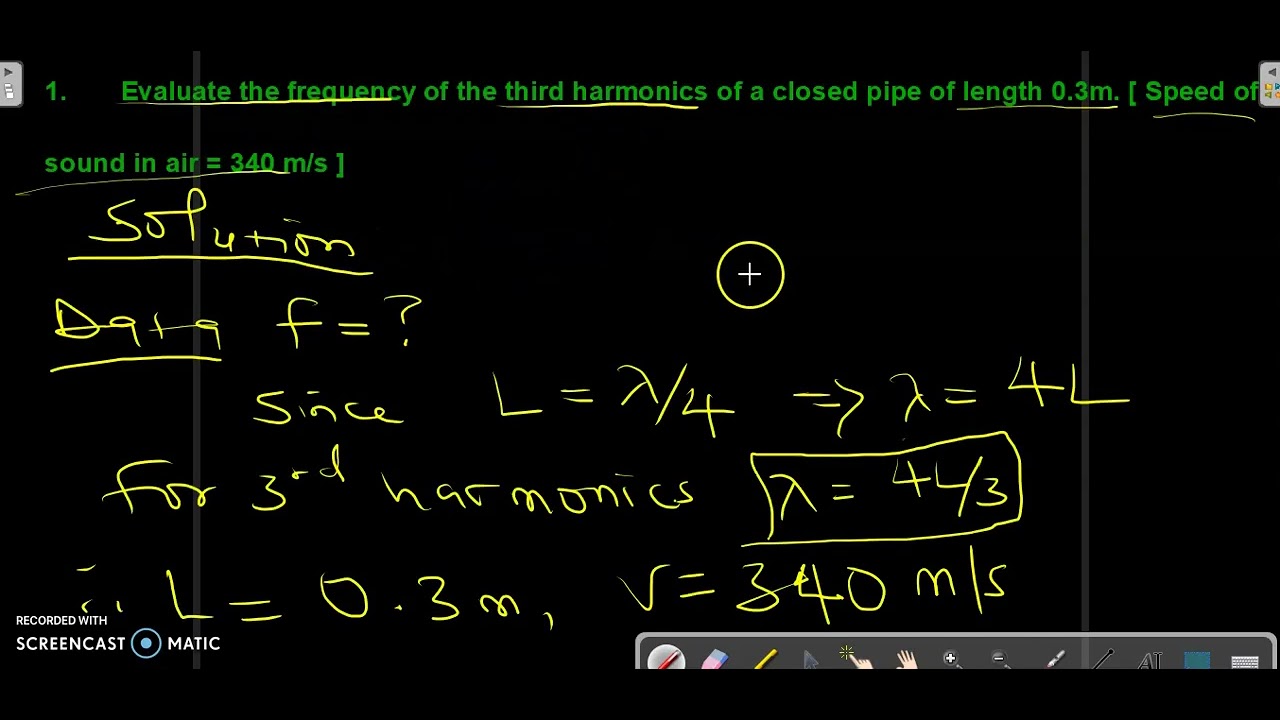 1. Evaluate the frequency of the third harmonics of a closed pipe of length 0.3m. [ Speed of
sound in air = 340 m/s ]
Solution
Data f = ?
Since L = λ/4 => λ = 4L
For 3rd harmonics λ = 4L/3
∴ L = 0.3m, v = 340 m/s
RECORDED WITH
SCREENCAST MATIC
AI